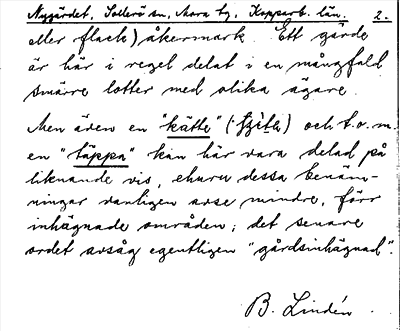 Nygärdet, Sollerö sn, Mora tg, Kopparb. län. 2.
eller flack) åkermark. Ett gärde
är här i regel delat i en mångfald
smärre lotter med olika ägare.
Men även en "kätte" ( ) och t.o.m.
en "täppa" kan här vara delad på
liknande vis, ehuru dessa benäm-
ningar vanligen avse mindre, förr
inhägnade områden; det senare
ordet avsåg egentligen "gårdsinhägnad".
B. Lindén